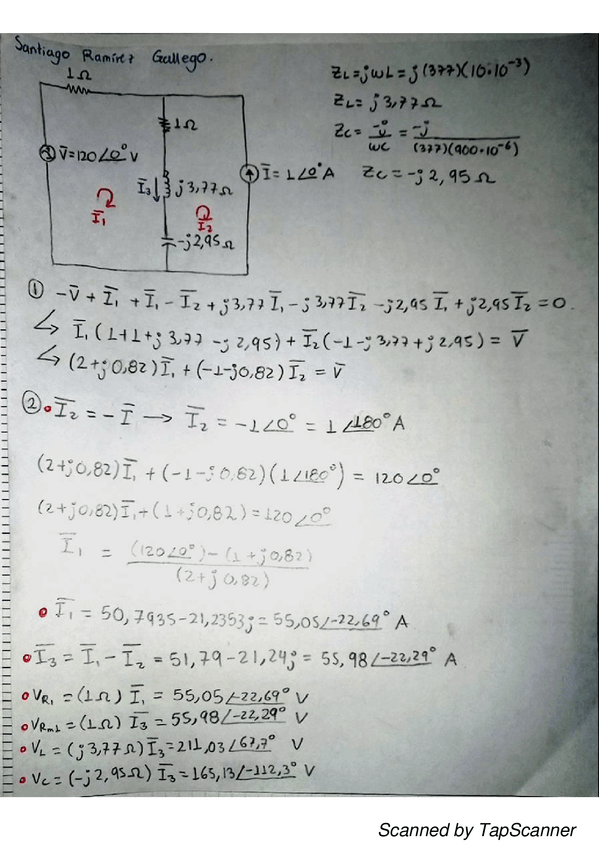 Santiago Ramírez Gallego.
1Ω
ZL=jωL=j(377)(10·10⁻³)
ZL= j3,77Ω
1Ω
Zc= -j/ωC = -j/(377)(900·10⁻⁶)
V̅=120∠0° V
I̅=1∠0° A
Zc= -j2,95Ω
I̅3↓ j3,77Ω
I̅1
I̅2
-j2,95Ω
① -V̅ + I̅1 + I̅1 - I̅2 + j3,77 I̅1 - j3,77 I̅2 - j2,95 I̅1 + j2,95 I̅2 = 0.
↳ I̅1 (1+1+j3,77 - j2,95) + I̅2 (-1-j3,77+j2,95) = V̅
↳ (2+j0,82) I̅1 + (-1-j0,82) I̅2 = V̅
② • I̅2 = -I̅ → I̅2 = -1∠0° = 1∠180° A
(2+j0,82) I̅1 + (-1-j0,82)(1∠180°) = 120∠0°
(2+j0,82) I̅1 + (1+j0,82) = 120∠0°
I̅1 = (120∠0°)-(1+j0,82) / (2+j0,82)
• I̅1 = 50,7935-21,2353j = 55,05∠-22,69° A
• I̅3 = I̅1 - I̅2 = 51,79-21,24j = 55,98∠-22,29° A
• VR1 = (1Ω) I̅1 = 55,05∠-22,69° V
• VRm1 = (1Ω) I̅3 = 55,98∠-22,29° V
• VL = (j3,77Ω) I̅3 = 211,03∠67,7° V
• Vc = (-j2,95Ω) I̅3 = 165,13∠-112,3° V
Scanned by TapScanner